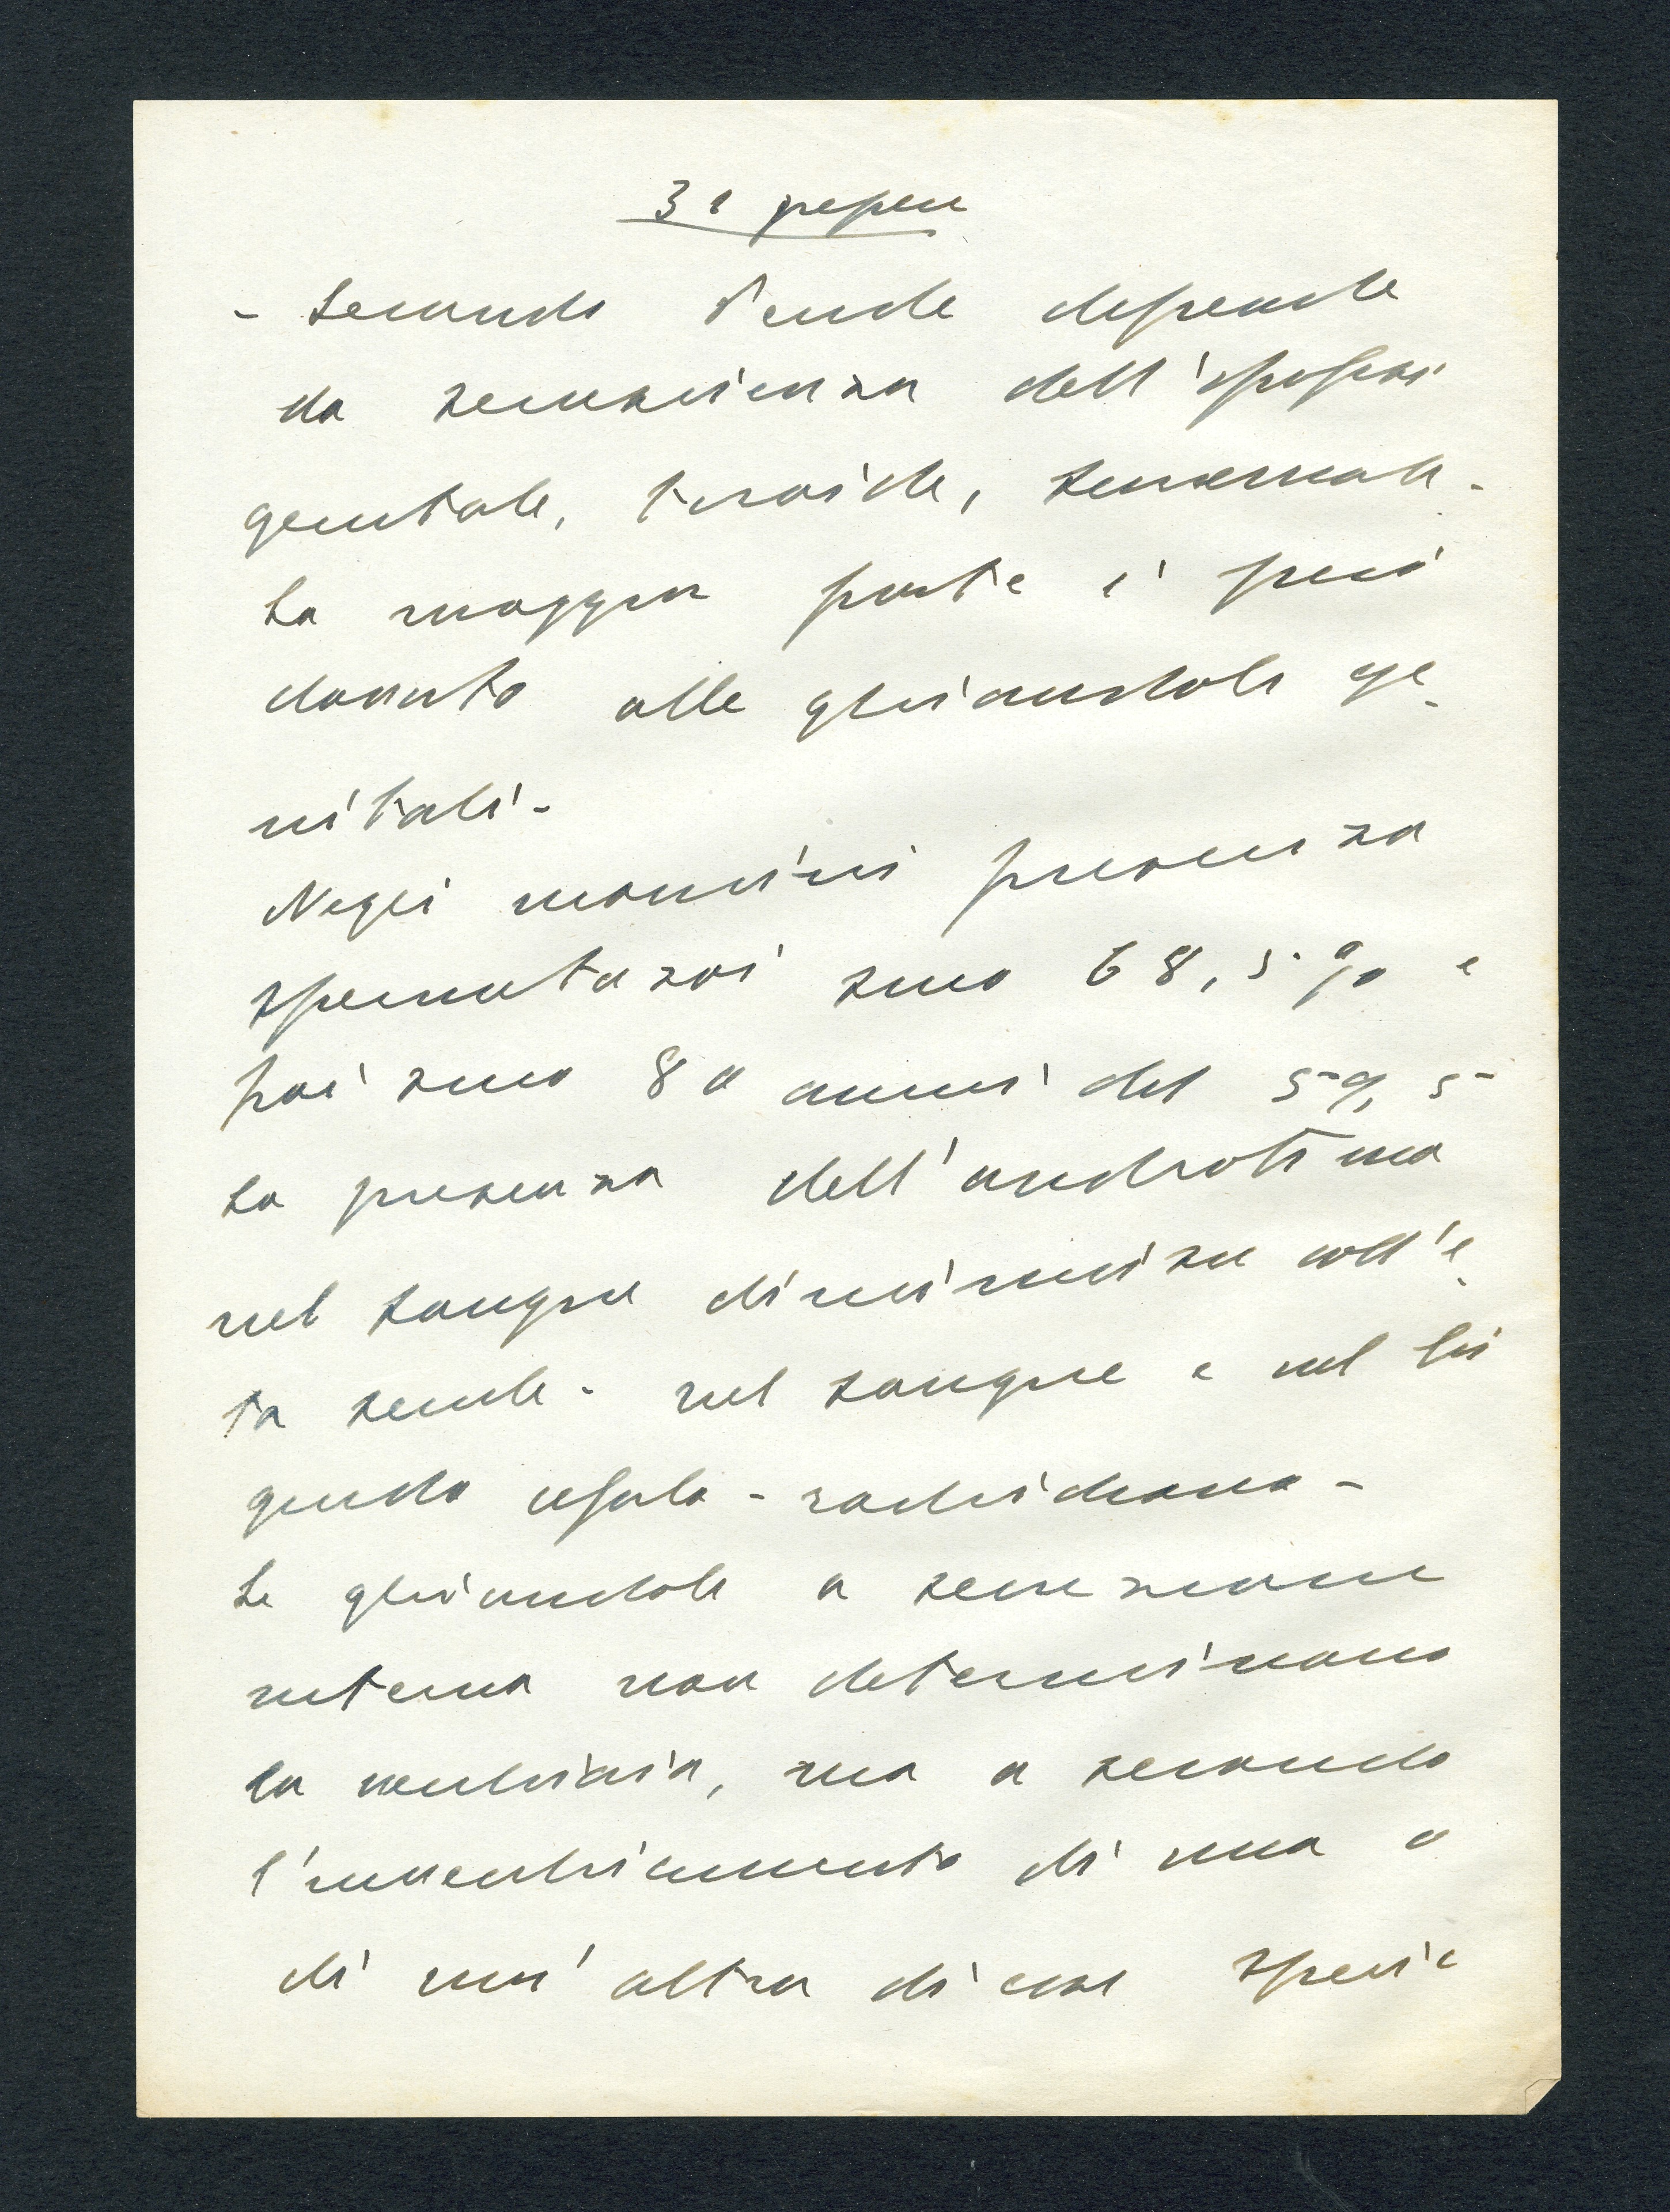 - Secondo Pende dipende
da senescienza dell'ipofisi
genitale, tiroide, surrenale.
La maggior parte è però
dovuto alle ghiandole ge-
nitali.
Negli uomini presenza
spermatozoi sino 68,5 % e
poi sino 80 anni del 59,5
La presenza dell'androtina
nel sangue diminuisce coll'e-
tà senile. nel sangue e nel li
quido cefalo-rachidiano -
Le ghiandole a secrezione
interna non determinano
la vecchiaia, ma a secondo
l'invecchiamento di una o
di un'altra di esse specie